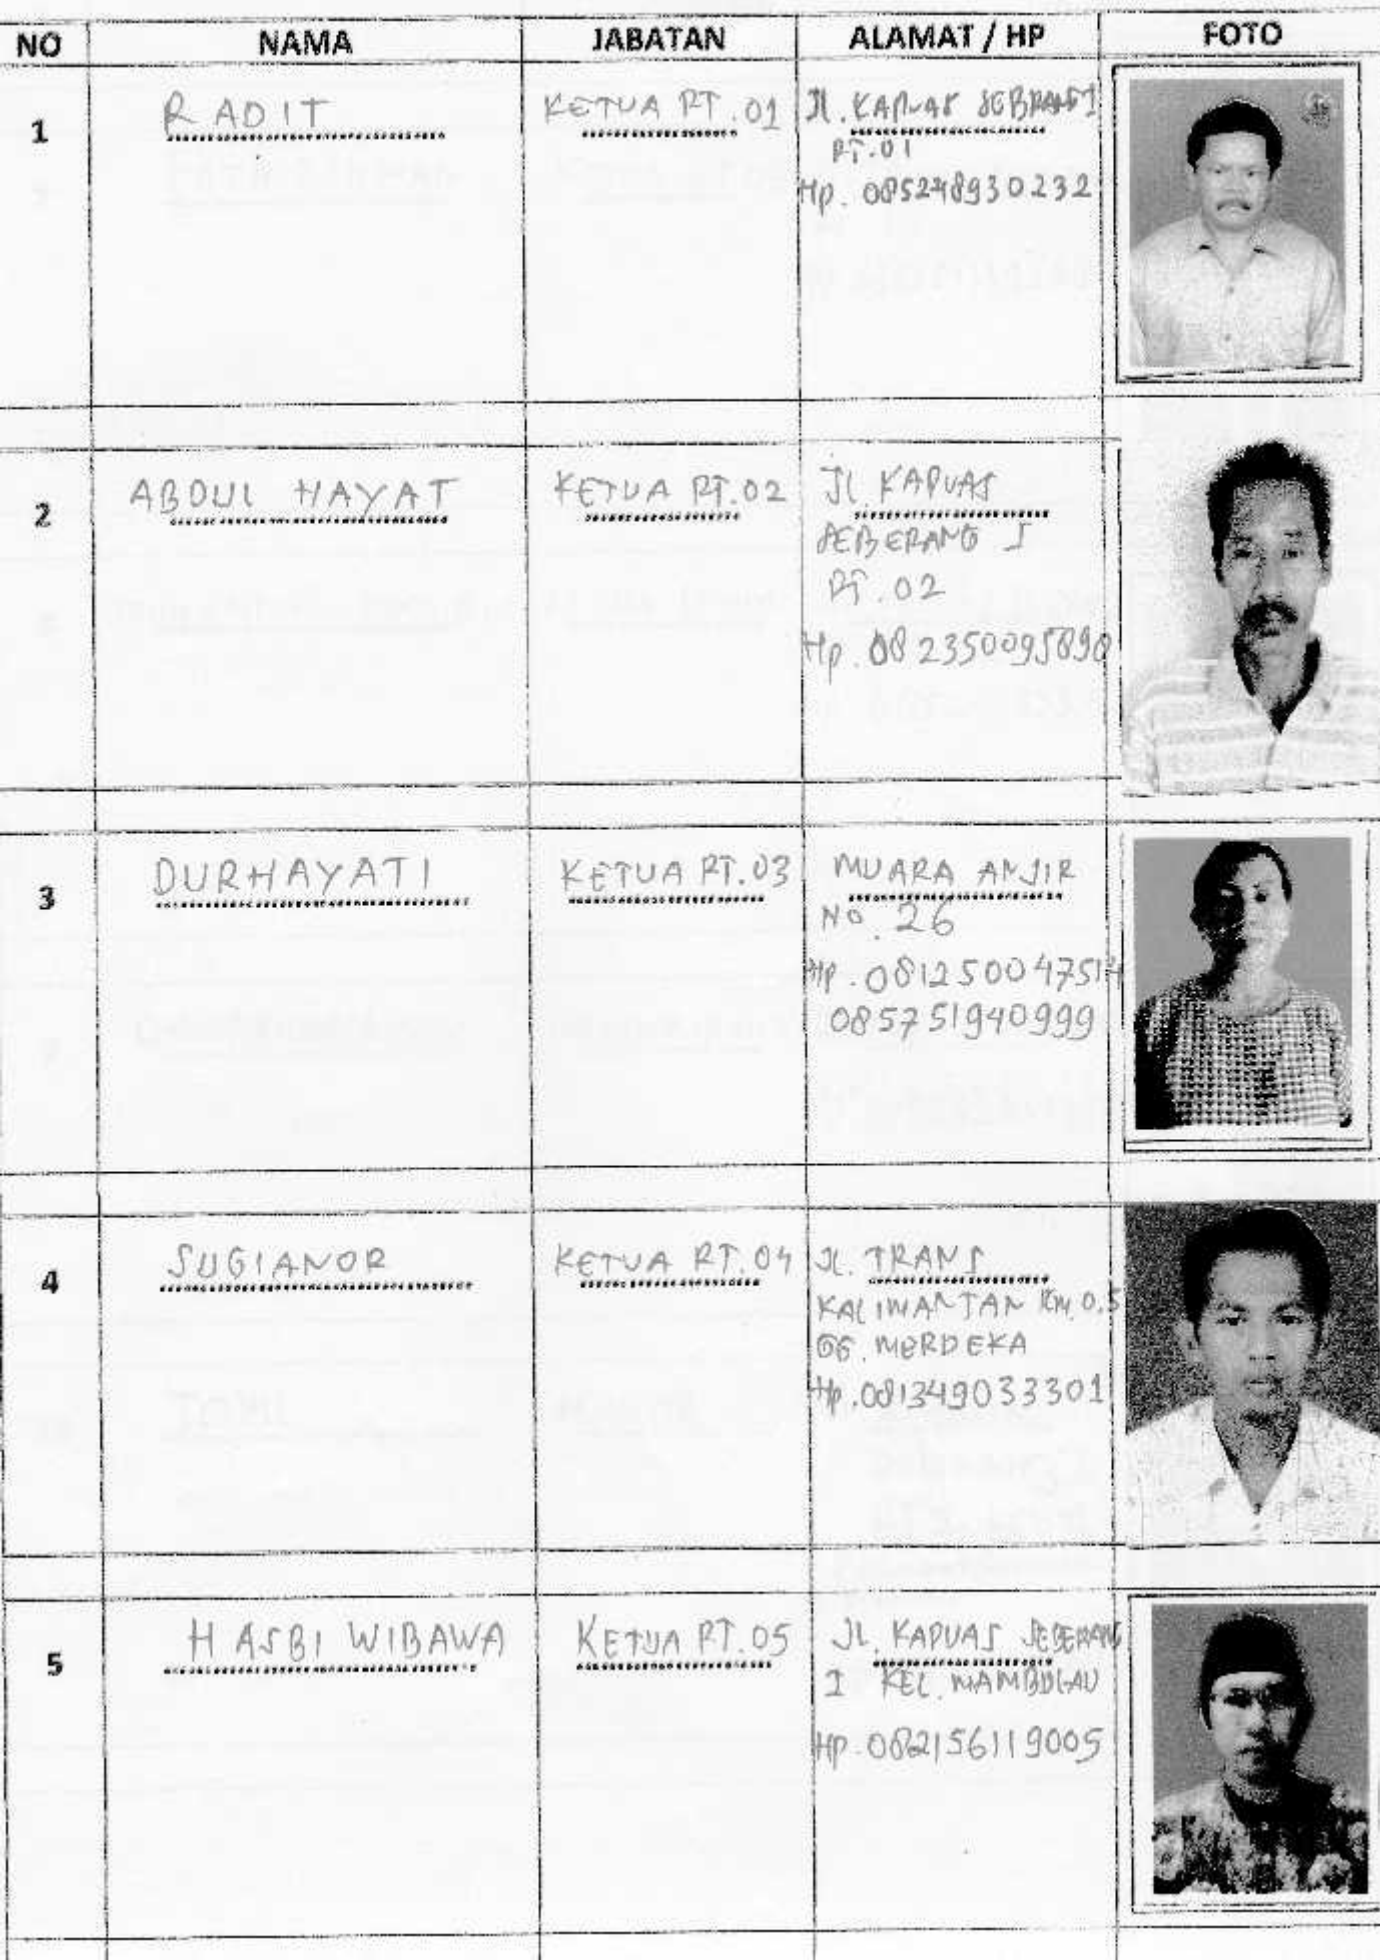 NO NAMA JABATAN ALAMAT / HP FOTO
1 RADIT KETUA RT.01 Jl. KAPUAS SEBRANG I
RT.01
Hp. 085248930232
2 ABDUL HAYAT KETUA RT.02 Jl. KAPUAS
SEBERANG I
RT.02
Hp. 082350095890
3 DURHAYATI KETUA RT.03 MUARA ANJIR
NO. 26
Hp. 081250047514
085751940999
4 SUGIANOR KETUA RT.04 JL. TRANS
KALIMANTAN KM 0.5
GG. MERDEKA
Hp. 081349033301
5 HASBI WIBAWA KETUA RT.05 JL. KAPUAS SEBERANG
I KEL. MAMBULAU
Hp. 082156119005